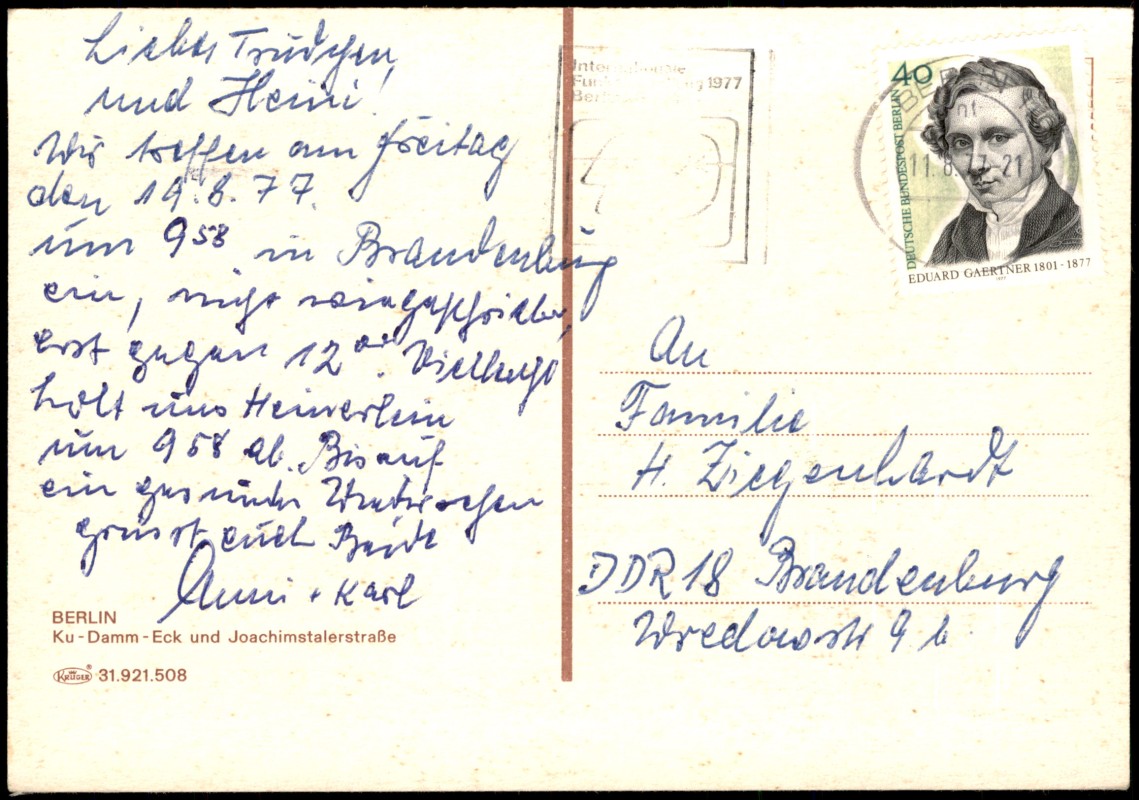 Liebes Trudchen,
und Heini!
Wir treffen am Freitag
den 19.8.77.
um 9 58 in Brandenburg
ein, nicht wie geschrieben,
erst gegen 12 00. Vielleicht
holt uns Heinerlein
um 9 58 ab. Bis auf
ein gesundes Wiedersehen
grüsst euch Beide
Anni + Karl
BERLIN
Ku-Damm-Eck und Joachimstalerstraße
KRÜGER® 31.921.508
Internationale
1977
Berlin
BERLIN
11.8.77-21
40
DEUTSCHE BUNDESPOST BERLIN
EDUARD GAERTNER 1801-1877
An
Familie
H. Ziegenhardt
DDR 18 Brandenburg
Wredowstr 9 b.